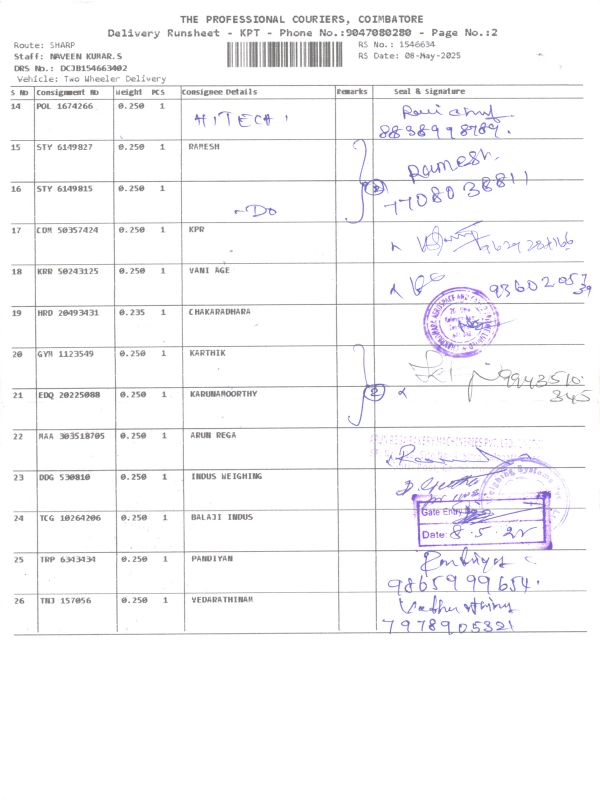 THE PROFESSIONAL COURIERS, COIMBATORE
Delivery Runsheet - KPT - Phone No.:9047080280 - Page No.:2
Route: SHARP
RS No.: 1546634
Staff: NAVEEN KUMAR.S
RS Date: 08-May-2025
DRS No.: DCJB154663402
Vehicle: Two Wheeler Delivery
S No Consignment No Weight PCS Consignee Details Remarks Seal & signature
14 POL 1674266 0.250 1 HITECH
8838998789.
15 STY 6149827 0.250 1 RAMESH Ramesh.
16 STY 6149815 0.250 1 -Do 2 7708038811
17 COM 50357424 0.250 1 KPR
18 KRR 50243125 0.250 1 VANI AGE
19 HRD 20493431 0.235 1 CHAKARADHARA
20 GYM 1123549 0.250 1 KARTHIK 9943510
345
21 EDQ 20225088 0.250 1 KARUNAMOORTHY 2
22 MAA 303518705 0.250 1 ARUN REGA
23 DDG 530810 0.250 1 INDUS WEIGHING
24 TCG 10264206 0.250 1 BALAJI INDUS Gate Entry No.
Date: 8.5.25
25 TRP 6343434 0.250 1 PANDIYAN Pandiyan
9865999654.
26 TNJ 157056 0.250 1 VEDARATHINAM
7978905321